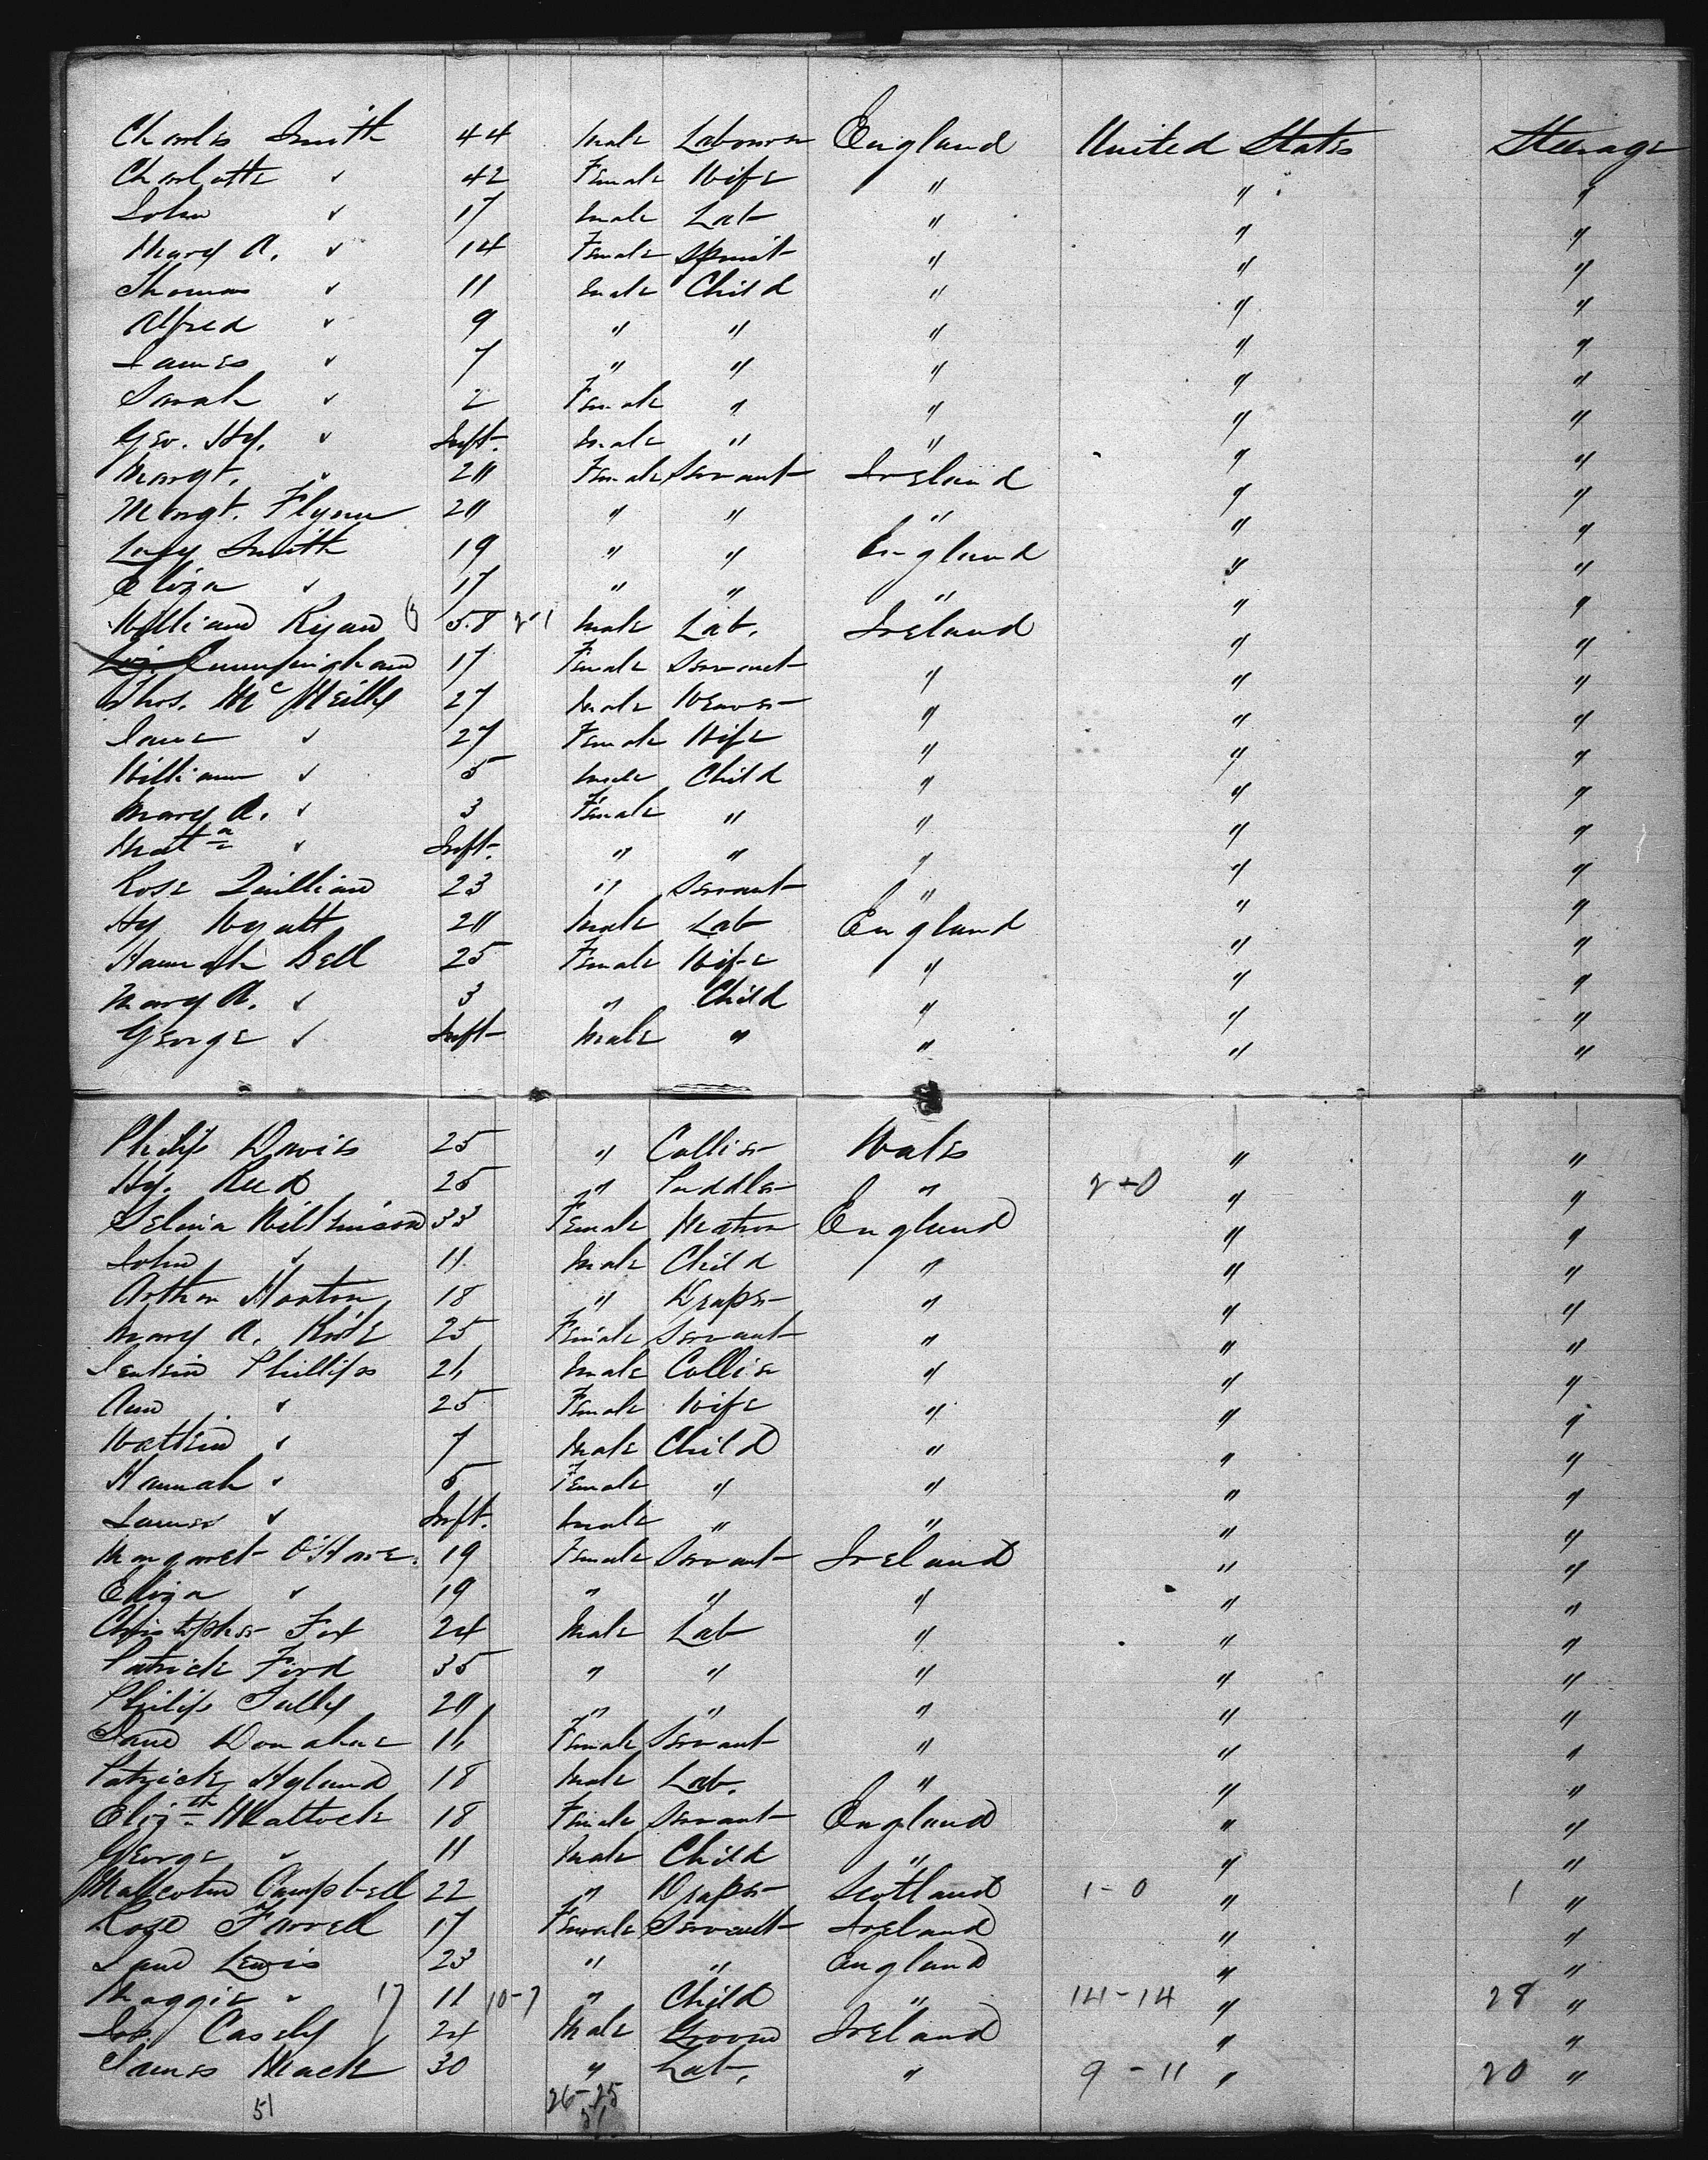 Charles Smith 44 Male Labourer England United States Steerage
Charlotte " 42 Female Wife " " "
John " 17 Male Lab " " "
Mary A. " 14 Female Spinst " " "
Thomas " 11 Male Child " " "
Alfred " 9 " " " " "
James " 7 " " " " "
Sarah " 2 Female " " " "
Geo. Hy. " Inft. Male " " " "
Margt. " 20 Female Servant Ireland " "
Margt. Flynn 20 " " " " "
Lucy Smith 19 " " England " "
Eliza " 17 " " " " "
William Ryan 58 2-1 Male Lab. Ireland " "
Cunningham 17 Female Servant " " "
Thos. McNeilly 27 Male Weaver " " "
Jane " 27 Female Wife " " "
William " 5 Male Child " " "
Mary A. " 3 Female " " " "
Mata " Inft. " " " " "
Rose Quillian 23 " Servant " " "
Hy Wyatt 20 Male Lab England " "
Hannah Bell 25 Female Wife " " "
Mary A. " 3 " Child " " "
George " Inft Male " " " "
Philip Davis 25 " Collier Wales " "
Hy. Reed 25 " Puddler " 2-0 " "
Selina Wilkinson 33 Female Matron England " "
John " 11 Male Child " " "
Arthur Horton 18 " Draper " " "
Mary A. 25 Female Servant " " "
Jenkin Phillips 26 Male Collier " " "
Ann " 25 Female Wife " " "
Watkin " 7 Male Child " " "
Hannah " 5 Female " " " "
James " Inft. Male " " " "
Margaret O'Hare 19 Female Servant Ireland " "
Eliza " 19 " " " " "
Christopher Fox 24 Male Lab " " "
Patrick Ford 35 " " " " "
Philip Tully 20 " " " " "
Jane Donahue 16 Female Servant " " "
Patrick Hyland 18 Male Lab. " " "
Elizth Mattock 18 Female Servant England " "
George " 11 Male Child " " "
Malcolm Campbell 22 " Draper Scotland 1-0 " 1 "
Rose Farrell 17 Female Servant Ireland " "
Jane Lewis 23 " " England " "
Maggie " 17 11 10-7 " Child " 14-14 " 28 "
Jas. Casely 24 Male Groom Ireland " "
James Mack 30 " Lab. " 9-11 " 20 "
51 26-25
51